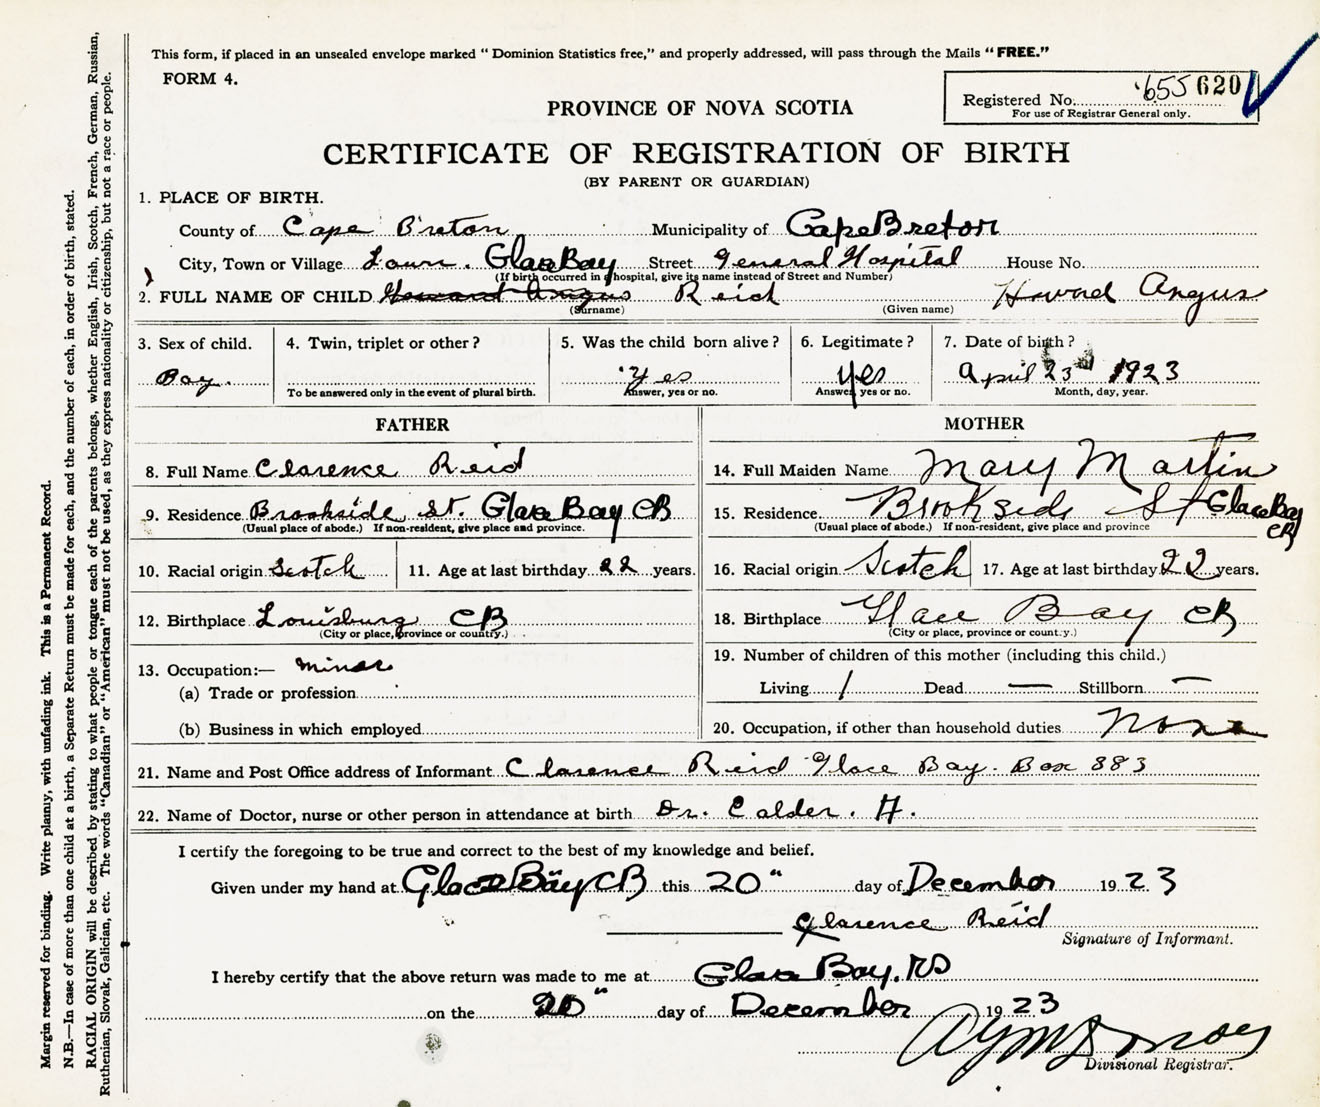 This form, if placed in an unsealed envelope marked “Dominion Statistics free,” and properly addressed, will pass through the Mails “FREE.”
FORM 4.
Registered No. 655 620
For use of Registrar General only.
PROVINCE OF NOVA SCOTIA
CERTIFICATE OF REGISTRATION OF BIRTH
(BY PARENT OR GUARDIAN)
1. PLACE OF BIRTH.
County of Cape Breton Municipality of Cape Breton
City, Town or Village Town. Glace Bay Street General Hospital House No.
(If birth occurred in a hospital, give its name instead of Street and Number)
2. FULL NAME OF CHILD Howard Angus Reid Howard Angus
(Surname) (Given name)
3. Sex of child. 4. Twin, triplet or other? 5. Was the child born alive? 6. Legitimate? 7. Date of birth?
Boy. Yes Yes April 23rd 1923
To be answered only in the event of plural birth. Answer, yes or no. Answer, yes or no. Month, day, year.
FATHER
8. Full Name Clarence Reid
9. Residence Brookside St. Glace Bay CB
(Usual place of abode.) If non-resident, give place and province.
10. Racial origin Scotch 11. Age at last birthday 22 years.
12. Birthplace Louisburg CB
(City or place, province or country.)
13. Occupation:— miner
(a) Trade or profession
(b) Business in which employed
MOTHER
14. Full Maiden Name Mary Martin
15. Residence Brookside St Glace Bay CB
(Usual place of abode.) If non-resident, give place and province
16. Racial origin Scotch 17. Age at last birthday 22 years.
18. Birthplace Glace Bay CB
(City or place, province or country.)
19. Number of children of this mother (including this child.)
Living 1 Dead — Stillborn —
20. Occupation, if other than household duties None
21. Name and Post Office address of Informant Clarence Reid Glace Bay. Box 883
22. Name of Doctor, nurse or other person in attendance at birth Dr. Calder. H.
I certify the foregoing to be true and correct to the best of my knowledge and belief.
Given under my hand at Glace Bay CB this 20" day of December 1923
Clarence Reid
Signature of Informant.
I hereby certify that the above return was made to me at Glace Bay. NS
on the 20" day of December 1923
Divisional Registrar.
Margin reserved for binding. Write plainly, with unfading ink. This is a Permanent Record.
N.B.—In case of more than one child at a birth, a Separate Return must be made for each, and the number of each, in order of birth, stated.
RACIAL ORIGIN will be described by stating to what people or tongue each of the parents belongs, whether English, Irish, Scotch, French, German, Russian,
Ruthenian, Slovak, Galician, etc. The words “Canadian” or “American” must not be used, as they express nationality or citizenship, but not a race or people.